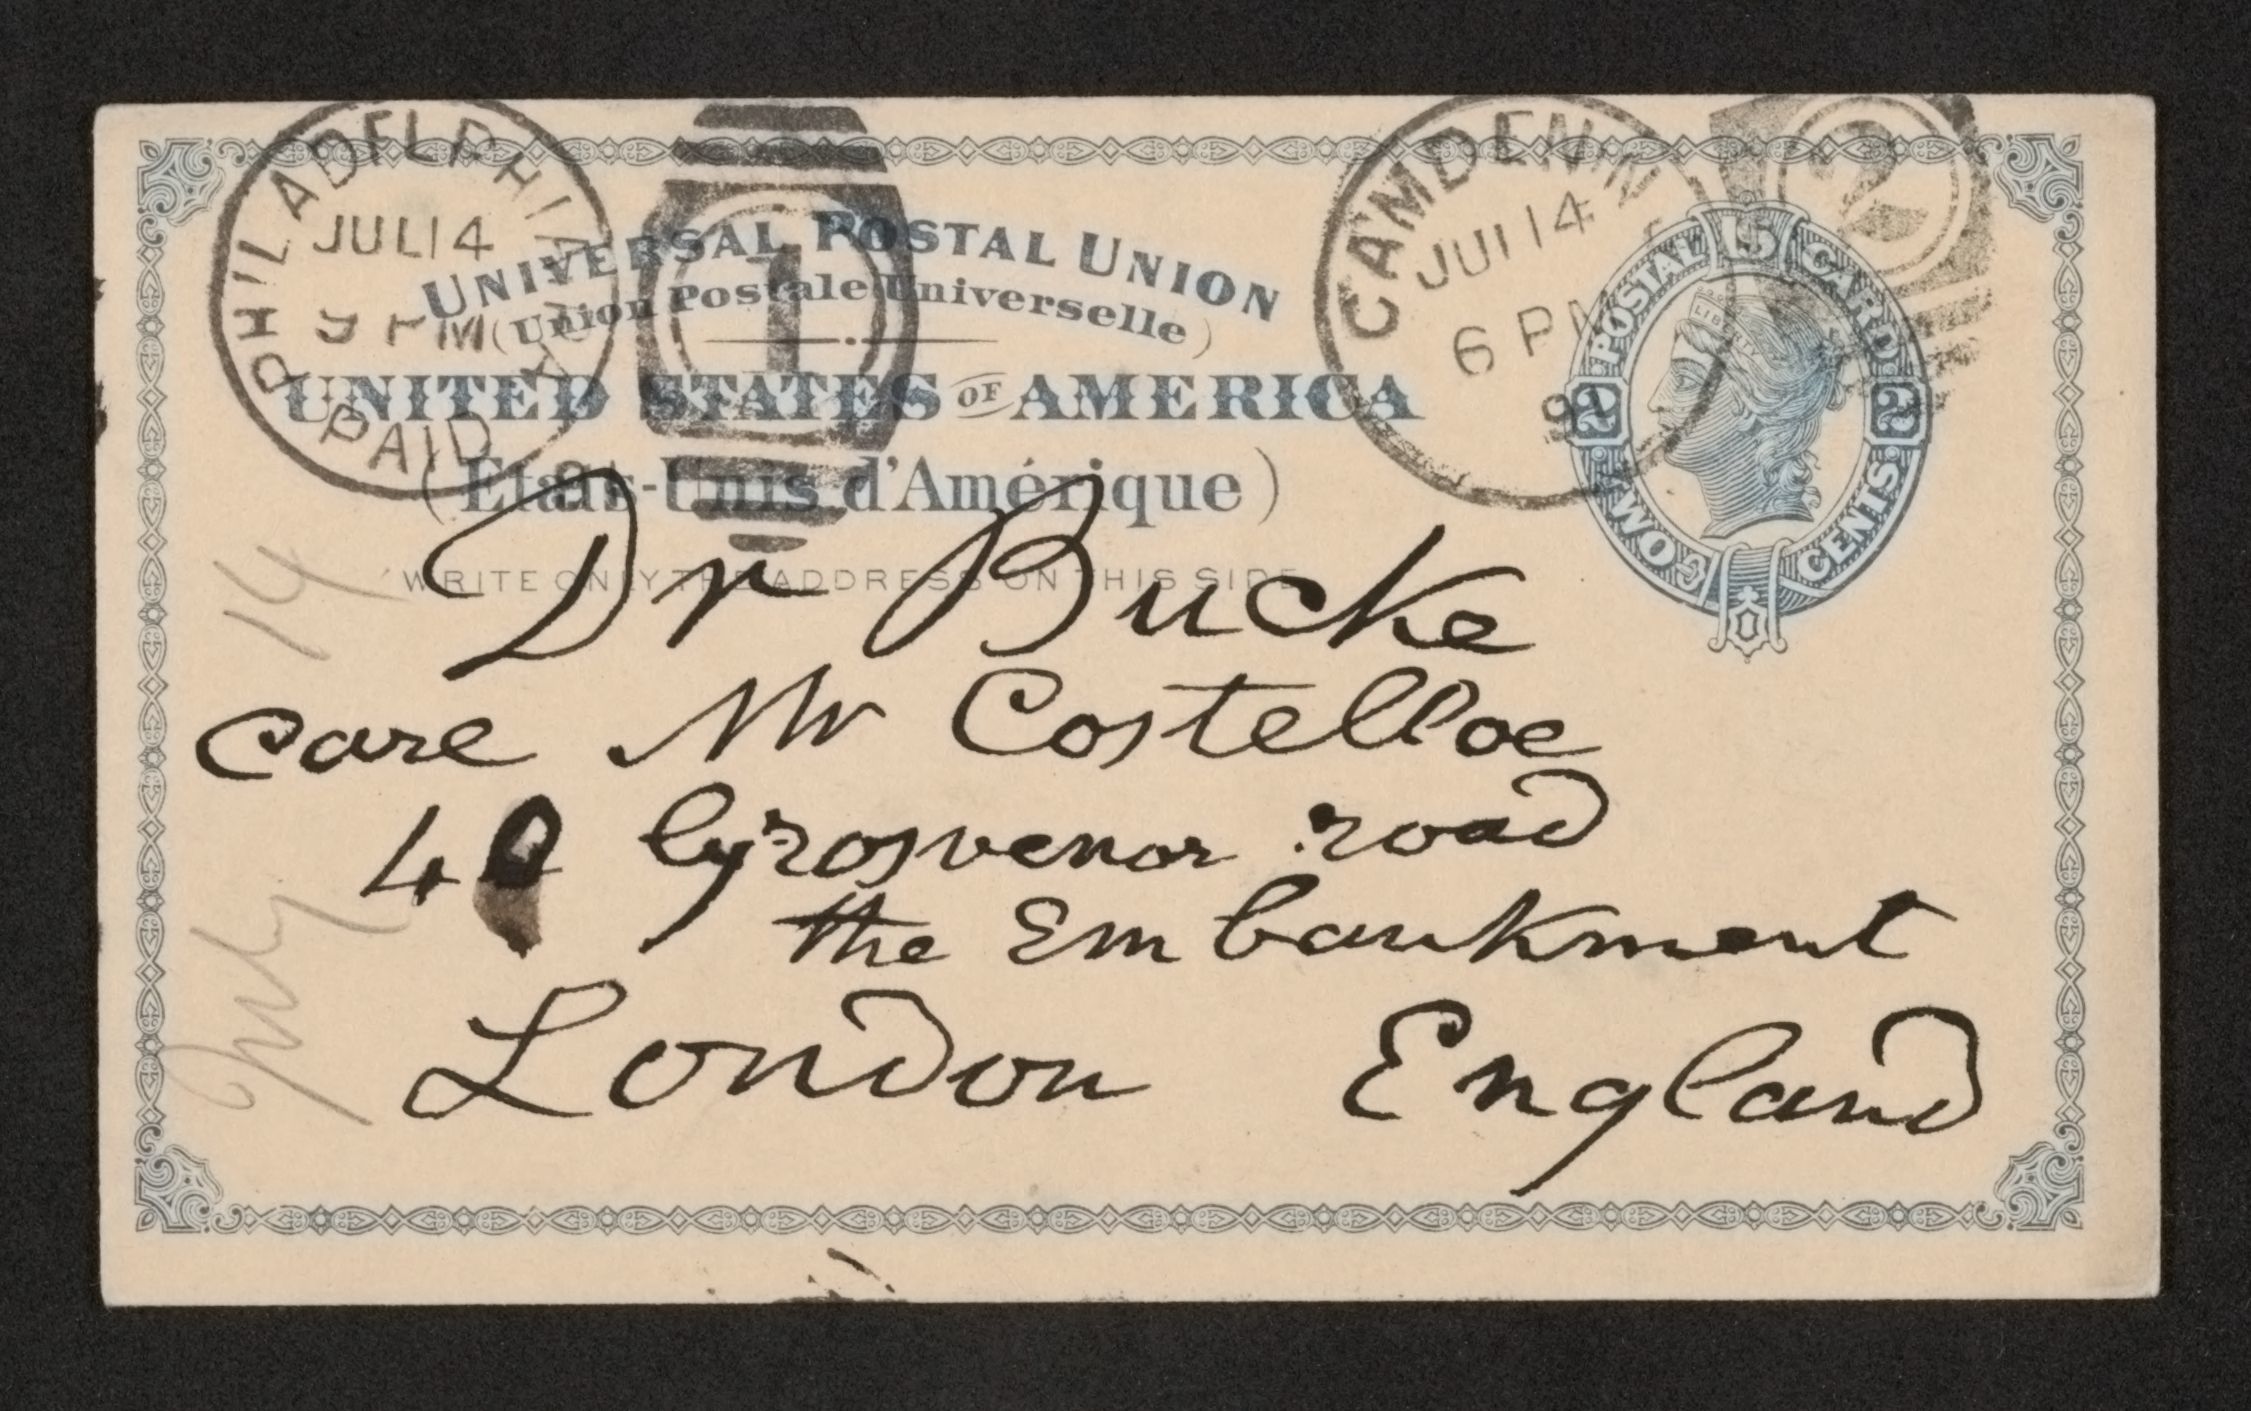 PHILADELPHIA
JUL 14
9 PM
PAID
1
CAMDEN N
JUL 14
6 PM
91
2
UNIVERSAL POSTAL UNION
(Union Postale Universelle)
UNITED STATES OF AMERICA
(États-Unis d'Amérique)
WRITE ONLY THE ADDRESS ON THIS SIDE
US POSTAL CARD
LIBERTY
2 2
TWO CENTS
Dr Bucke
care Mr Costelloe
40 Grosvenor road
the Embankment
London England
July 14